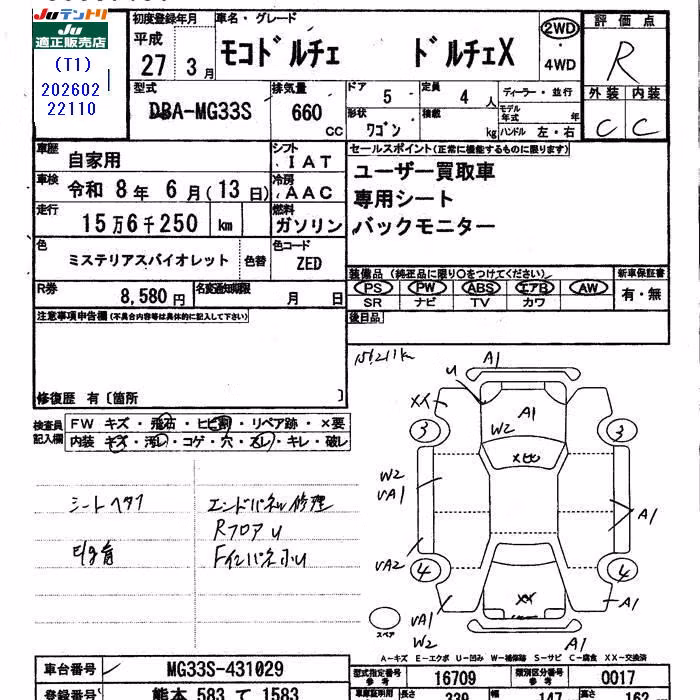 Juテントリ
Ju
適正販売店
(T1)
202602
22110
初度登録年月
平成
27 3月
車名・グレード
モコドルチェ ドルチェX
2WD
・
4WD
評価点
R
型式
DBA-MG33S
排気量
660 CC
ドア
5
定員
4人
ディーラー・並行
形状
ワゴン
積載
kg
モデル年式 年
ハンドル 左・右
外装 内装
C C
車歴
自家用
シフト
IAT
セールスポイント(正常に機能するものに限ります)
車検
令和 8年 6月(13日)
冷房
AAC
ユーザー買取車
専用シート
バックモニター
走行
15万6千250 km
燃料
ガソリン
色
ミステリアスバイオレット
色替
色コード
ZED
装備品(純正品に限り○をつけてください)
新車保証書
PS PW ABS エアB AW
SR ナビ TV カワ
有・無
R券
8,580円
名変通知期限
月 日
後日品
注意事項申告欄(不具合内容等は具体的に記入して下さい)
修復歴 有〔箇所 〕
検査員記入欄
FW キズ・飛石・ヒビ割・リペア跡・×要
内装 キズ・汚レ・コゲ・穴・スレ・キレ・破レ
シートヘタリ
エンドパネル修理
RフロアU
156211k
A1
U
XX
A1
W2
3
3
XX
W2
A1
A1
A2
4
4
XX
A1
A1
W2
A1
スペア
A-キズ E-エクボ U-凹み W-補修跡 S-サビ C-腐食 XX-交換済
車台番号
MG33S-431029
型式指定番号
参考
16709
類別区分番号
参考
0017
登録番号
熊本 583 て 1583
長さ
339
幅
147
高さ
162